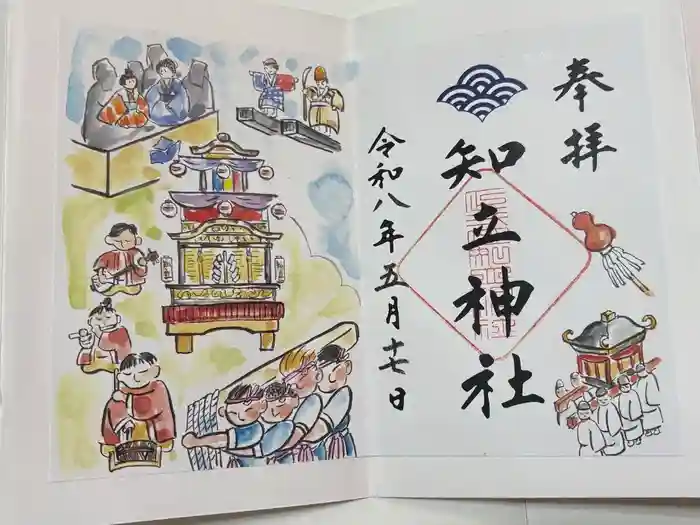 奉拝
知立神社
令和八年五月十七日